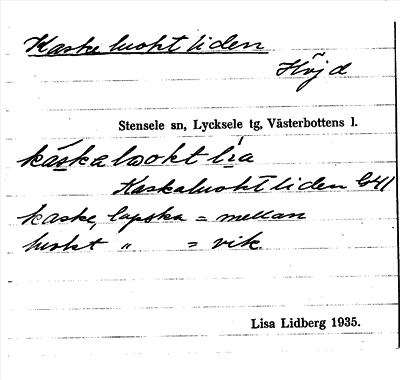 Kaskeluoktliden
Höjd
Stensele sn, Lycksele tg, Västerbottens l.
kaskalookt lia
Kaskaluoktliden G41
kaske, lapska = mellan
luokt " = vik
Lisa Lidberg 1935.